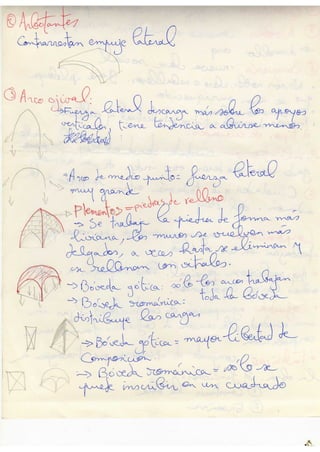 ② Arbotantes
Contrarrestan empuje lateral
③ Arco ojival:
Fuerza lateral descarga más sobre los apoyos
verticales, tiene tendencia a abrirse menos
*Arco de medio punto: fuerza lateral
muy grande
Plementos = piedras de relleno
→ Se trabaja la piedra de forma más
liviana, los muros se vuelven más
delgados, a veces hasta se eliminan y
se rellenan con vitrales.
→ Bóveda gótica: sólo los arcos trabajan
→ Bóveda románica: toda la bóveda
distribuye las cargas
→ Bóveda gótica = mayor libertad de
composición
→ Bóveda románica = sólo se
puede inscribir en un cuadrado